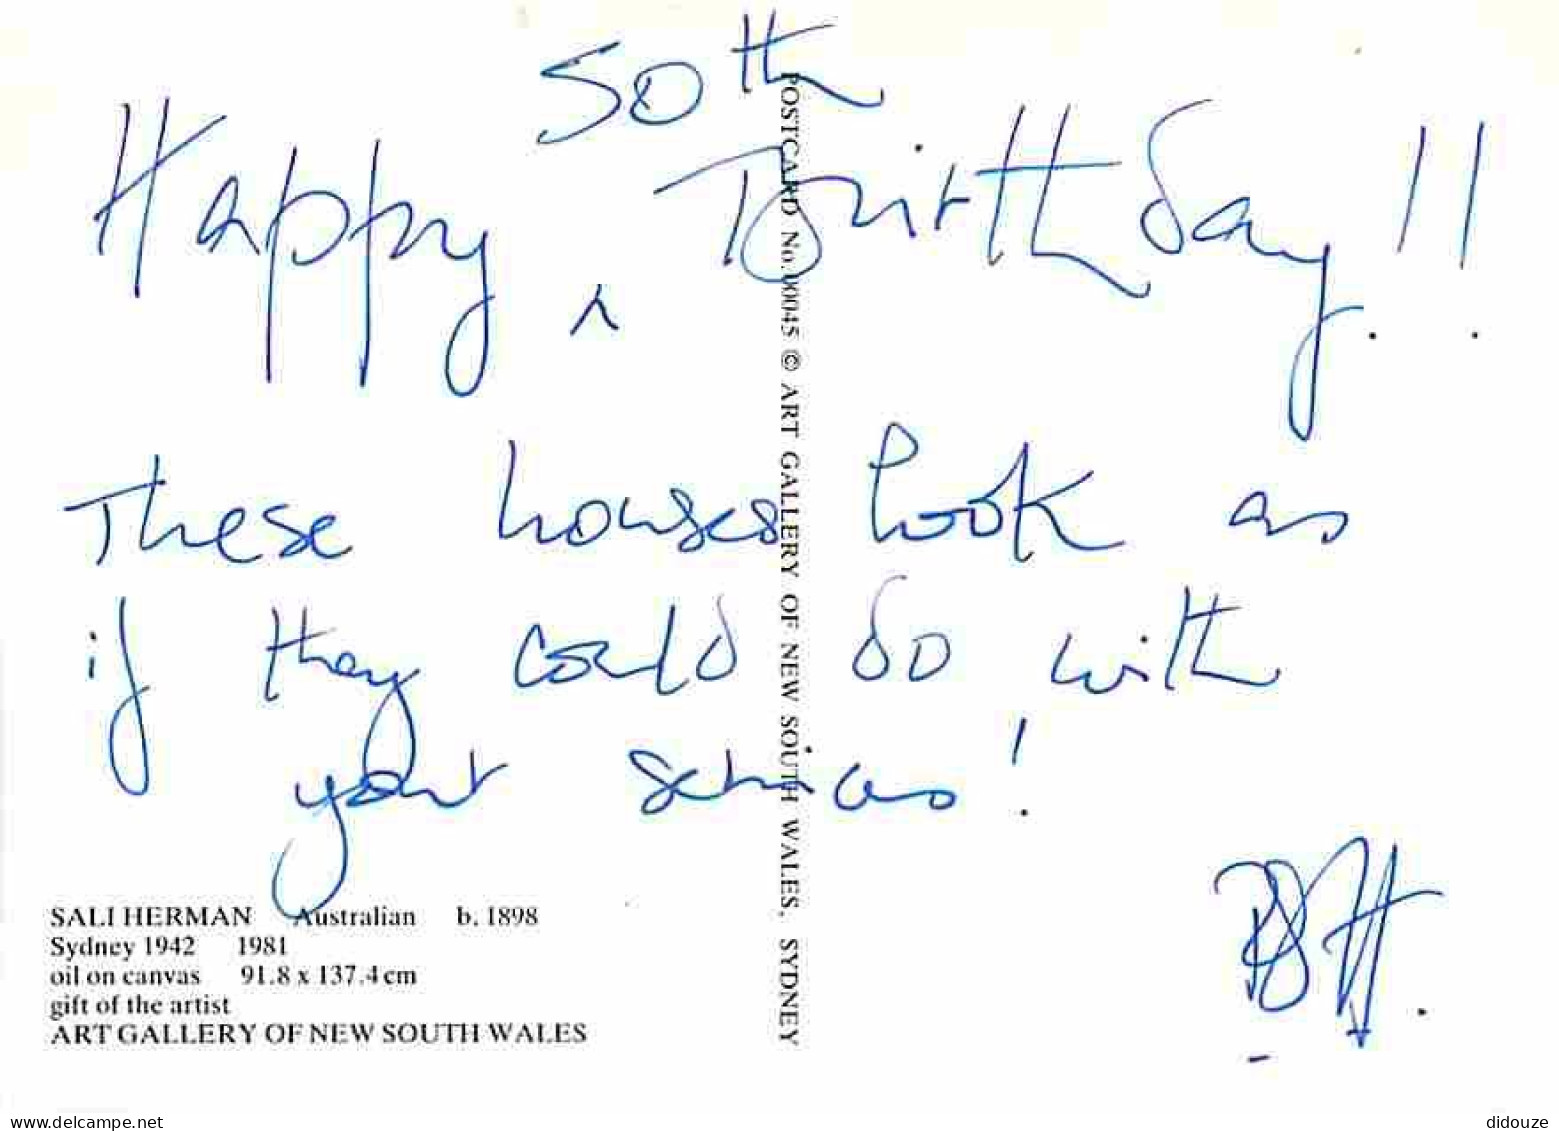 50th
Happy ^ Birthday!!
These houses look as
if they could do with
your services!
SALI HERMAN Australian b. 1898
Sydney 1942 1981
oil on canvas 91.8 x 137.4 cm
gift of the artist
ART GALLERY OF NEW SOUTH WALES
POSTCARD No. 00045 © ART GALLERY OF NEW SOUTH WALES, SYDNEY
www.delcampe.net
didouze